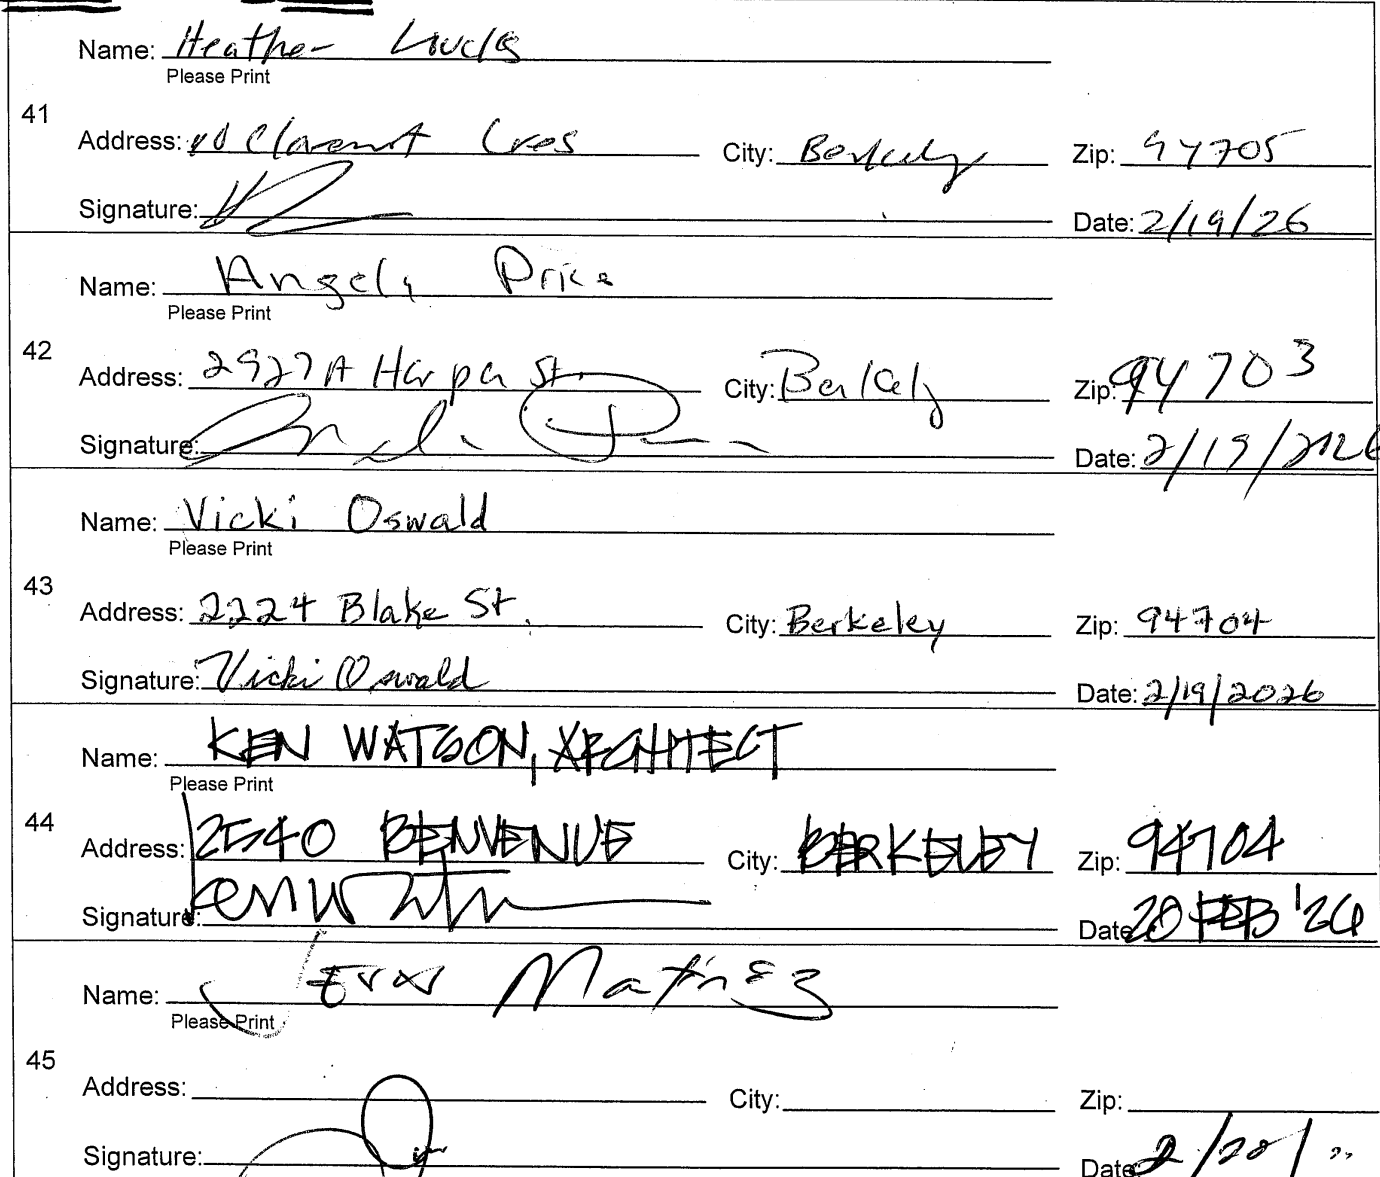 Name: Heather
Please Print
41
Address: Claremont Cres City: Berkeley Zip: 94705
Signature: Date: 2/19/26
Name: Angela Price
Please Print
42
Address: 2927A Harper St. City: Berkeley Zip: 94703
Signature: Date: 2/19/2026
Name: Vicki Oswald
Please Print
43
Address: 2224 Blake St. City: Berkeley Zip: 94704
Signature: Vicki Oswald Date: 2/19/2026
Name: KEN WATSON, ARCHITECT
Please Print
44
Address: 2540 BENVENUE City: BERKELEY Zip: 94704
Signature: Date: 20 FEB '26
Name:
Please Print
45
Address: City: Zip:
Signature: Date: 2/20/